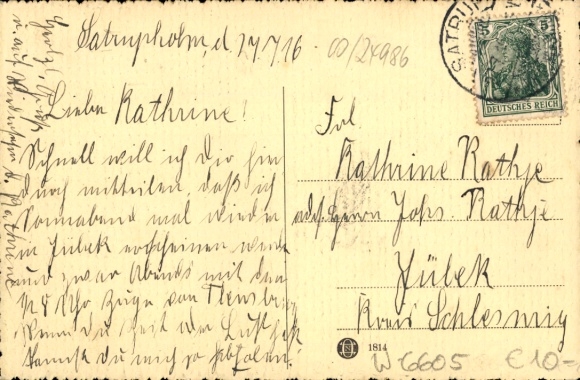 Satrupholm, d 27/7 16
00/24986
Liebe Kathrine!
Schnell will ich Dir hier
durch mitteilen, daß ich
Sonnabend mal wieder
in Jübek erscheinen werde
und zwar Abends mit dem
8 Uhr Zuge von Flensburg.
Wenn du Zeit oder Lust hast
kannst du mich ja abholen!
Gruß
u. auf Wiedersehn d. Kathrine
SATRUP
5
5
DEUTSCHES REICH
Frl
Kathrine Rathje
adr. Herrn Johs. Rathje
Jübek
Kreis Schleswig
1814
W-6605
€10-